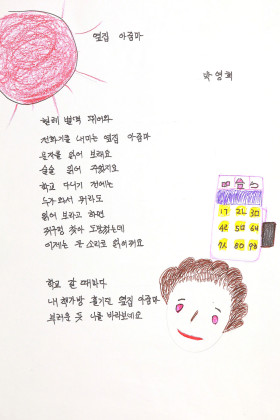 옆집 아줌마
박영희
헐레 벌떡 뛰어와
전화기를 내미는 옆집 아줌마
문자를 읽어 보래요
술술 읽어 주었지요
학교 다니기 전에는
누가 와서 뭐라도
읽어 보라고 하면
쥐구멍 찾아 도망쳤는데
이제는 큰 소리로 읽어줘요
학교 갈 때마다
내 책가방 흘기던 옆집 아줌마
부러운 듯 나를 바라보네요